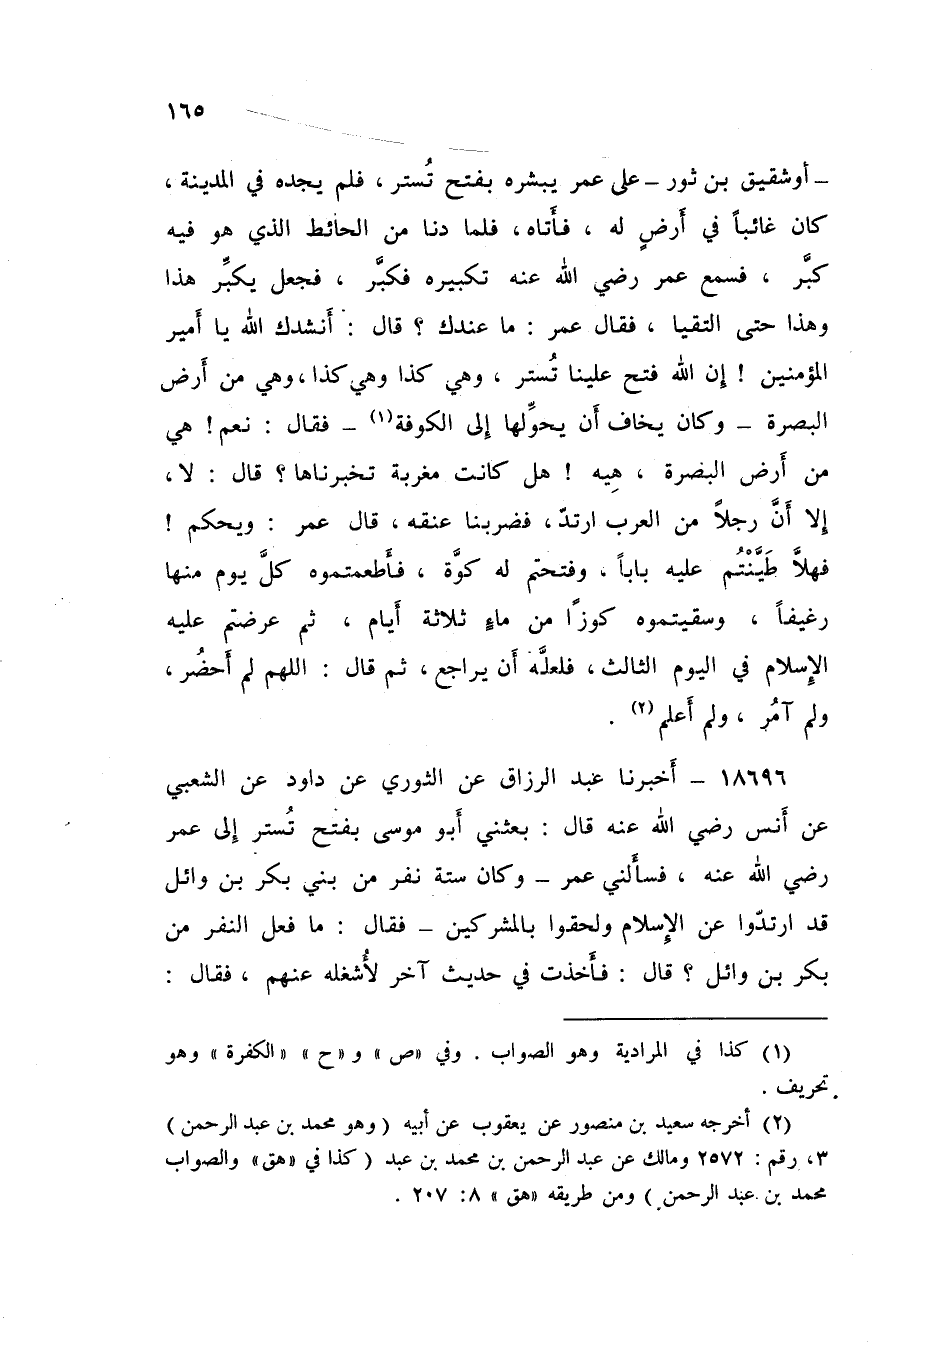 ١٦٥
ـ أوشقيق بن ثور ـ على عمر يبشره بفتح تُستر ، فلم يجده في المدينة ،
كان غائباً في أَرضٍ له ، فأَتاه ، فلما دنا من الحائط الذي هو فيه
كبَّر ، فسمع عمر رضي الله عنه تكبيره فكبَّر ، فجعل يكبِّر هذا
وهذا حتى التقيا ، فقال عمر : ما عندك ؟ قال : أَنشدك الله يا أَمير
المؤمنين ! إن الله فتح علينا تُستر ، وهي كذا وهي كذا ، وهي من أَرض
البصرة ـ وكان يخاف أن يحوِّلها إلى الكوفة(١) ـ فقال : نعم ! هي
من أَرض البصرة ، هِيه ! هل كانت مغربة تخبرناها ؟ قال : لا ،
إلا أَنَّ رجلاً من العرب ارتدّ ، فضربنا عنقه ، قال عمر : ويحكم !
فهلاَّ طَيَّنْتُم عليه باباً ، وفتحتم له كوَّة ، فأَطعمتموه كلَّ يوم منها
رغيفاً ، وسقيتموه كوزًا من ماءٍ ثلاثة أَيام ، ثم عرضتم عليه
الإِسلام في اليوم الثالث ، فلعلَّه أن يراجع ، ثم قال : اللهم لم أَحضُر ،
ولم آمُر ، ولم أَعلم(٢) .
١٨٦٩٦ ـ أَخبرنا عبد الرزاق عن الثوري عن داود عن الشعبي
عن أَنس رضي الله عنه قال : بعثني أَبو موسى بفتح تُستر إلى عمر
رضي الله عنه ، فسأَلني عمر ـ وكان ستة نفر من بني بكر بن وائل
قد ارتدّوا عن الإِسلام ولحقوا بالمشركين ـ فقال : ما فعل النفر من
بكر بن وائل ؟ قال : فأَخذت في حديث آخر لأُشغله عنهم ، فقال :
(١) كذا في المرادية وهو الصواب . وفي «ص» و «ح» «الكفرة» وهو
تحريف .
(٢) أخرجه سعيد بن منصور عن يعقوب عن أبيه (وهو محمد بن عبد الرحمن)
٣، رقم : ٢٥٧٢ ومالك عن عبد الرحمن بن محمد بن عبد (كذا في «هق» والصواب
محمد بن عبد الرحمن) ومن طريقه «هق» ٨: ٢٠٧ .